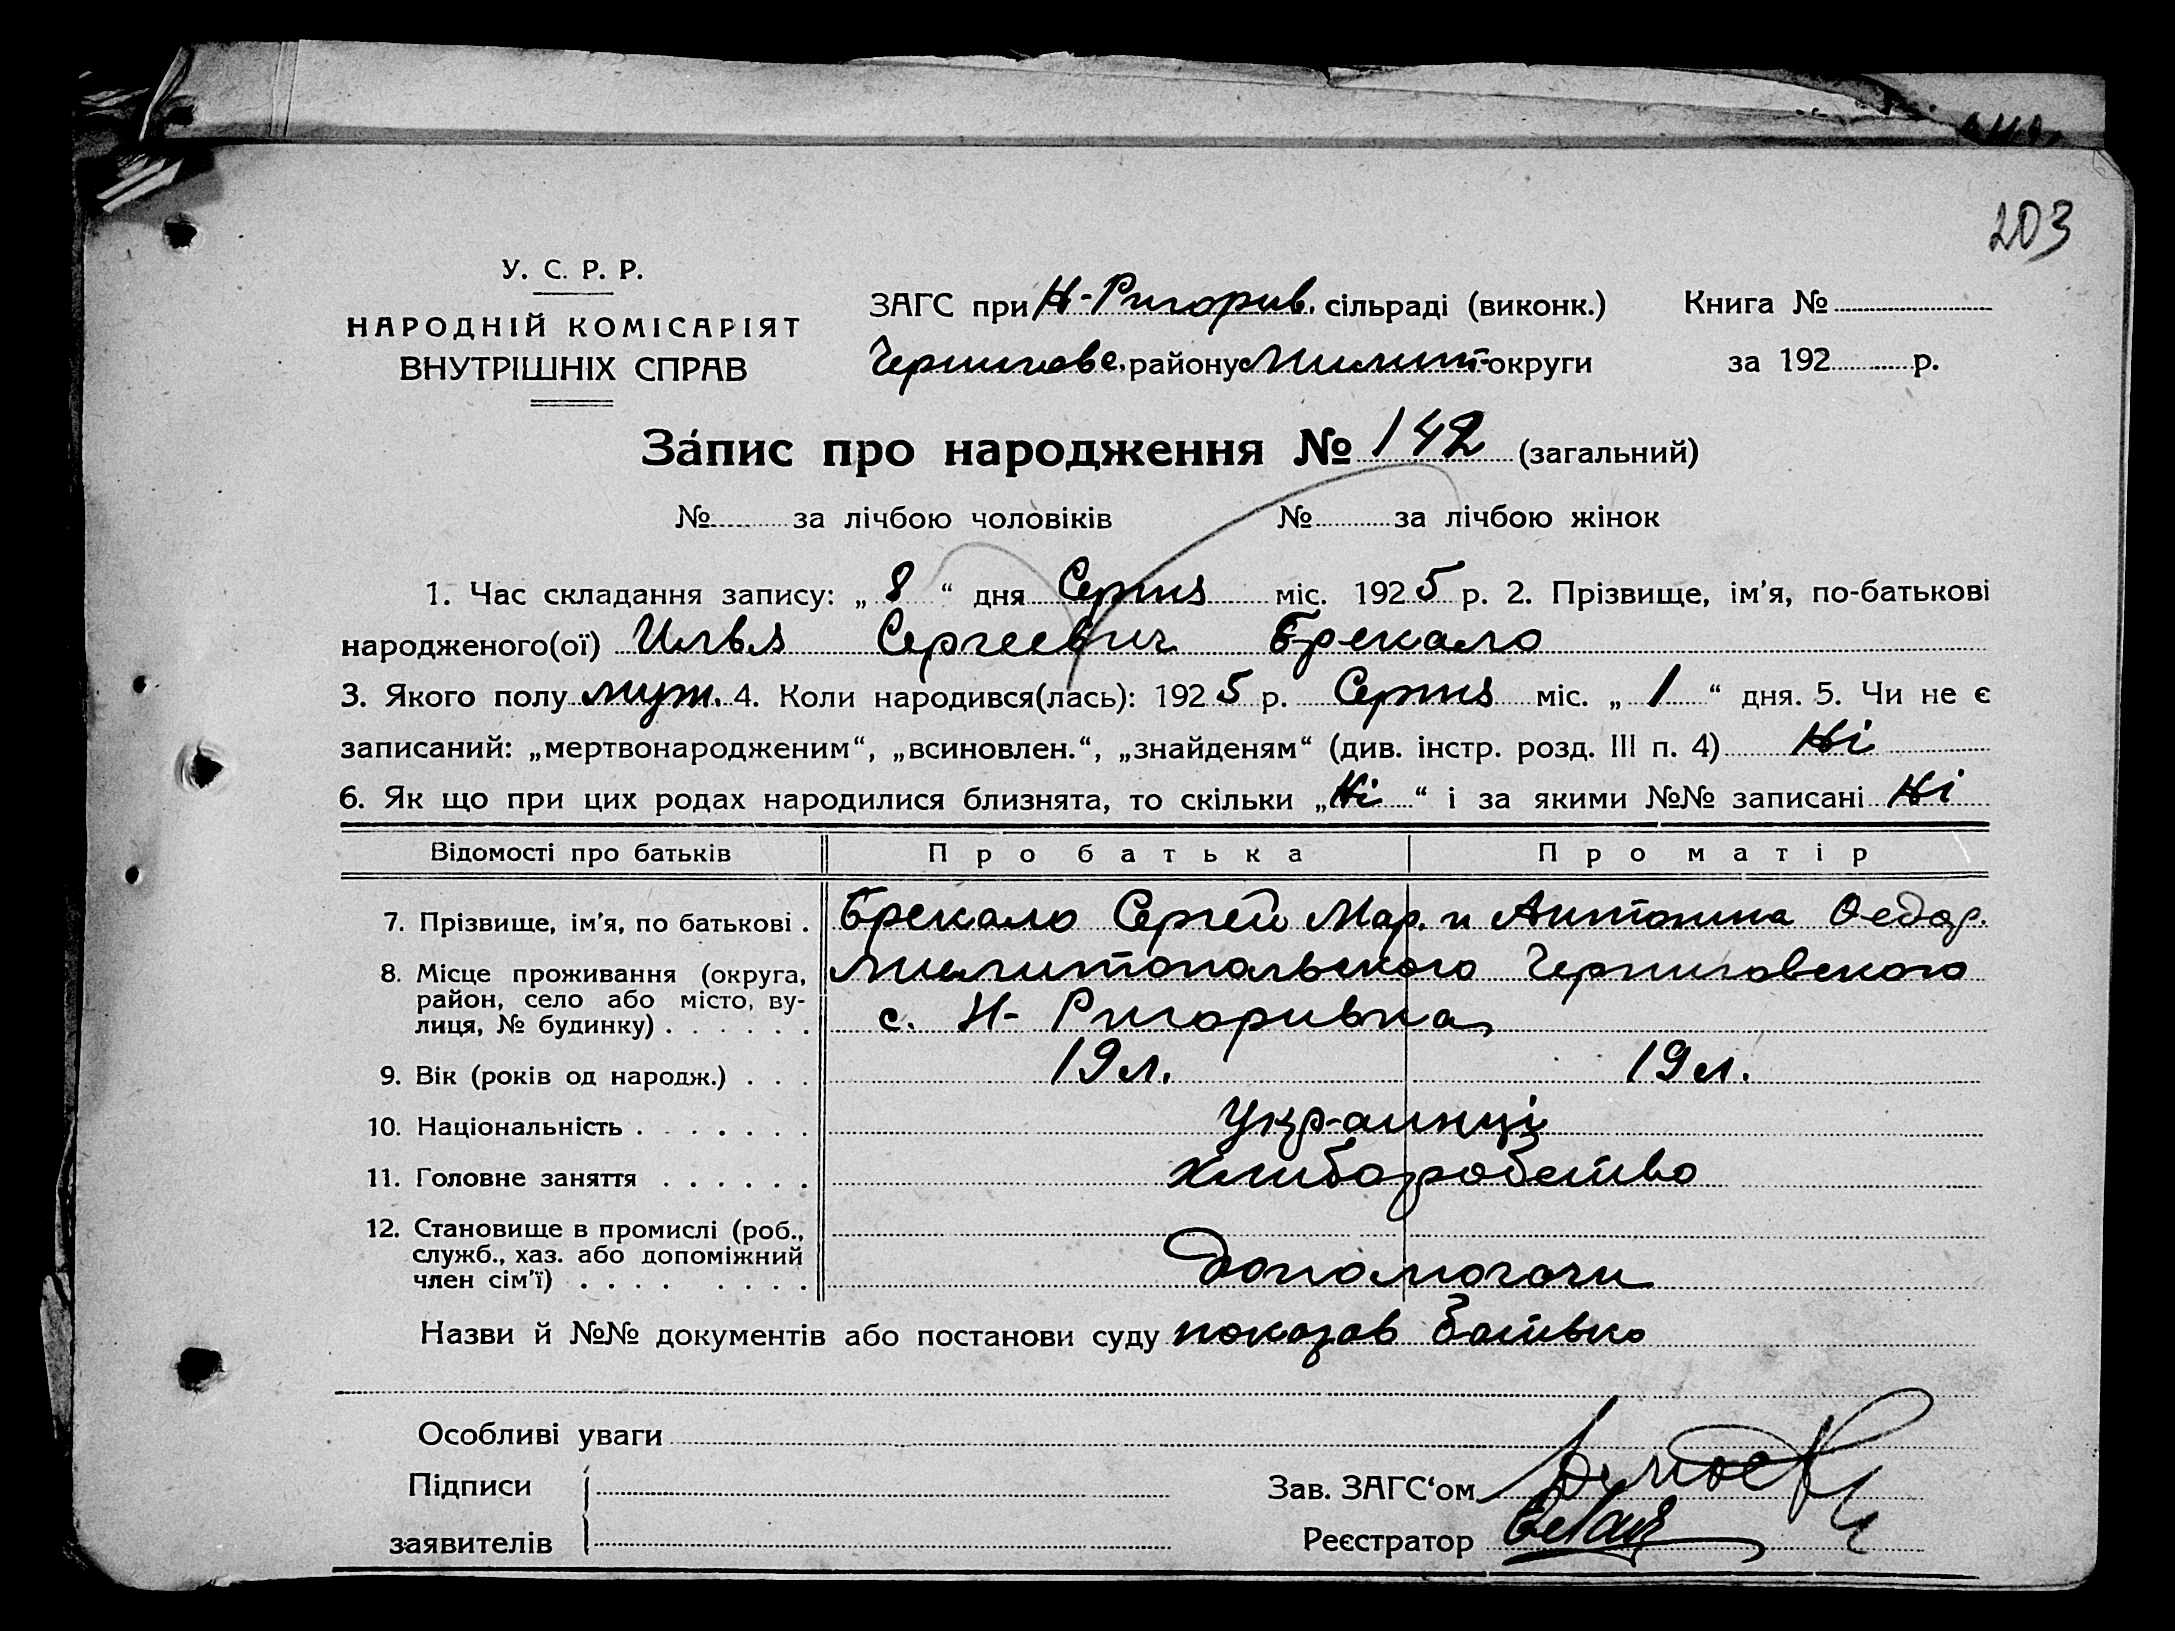 203
У. С. Р. Р.
НАРОДНІЙ КОМІСАРІЯТ
ВНУТРІШНІХ СПРАВ
ЗАГС при Н-Ригорив. сільраді (виконк.) Книга №
Черниговс. району Милит. округи за 192 р.
Запис про народження № 142 (загальний)
№ за лічбою чоловіків № за лічбою жінок
1. Час складання запису: „ 8 “ дня Серпня міс. 1925 р. 2. Прізвище, ім'я, по-батькові
народженого(ої) Илья Сергеевич Брекало
3. Якого полу муж. 4. Коли народився(лась): 1925 р. Серпня міс. „ 1 “ дня. 5. Чи не є
записаний: „мертвонародженим“, „всиновлен.“, „знайденям“ (див. інстр. розд. III п. 4) Ні
6. Як що при цих родах народилися близнята, то скільки „Ні“ і за якими №№ записані Ні
Відомості про батьків Про батька Про матір
7. Прізвище, ім'я, по батькові . Брекало Сергей Мар. и Антонина Федор.
8. Місце проживання (округа, Милитопольского Черниговского
район, село або місто, ву-
лиця, № будинку) . . . . . . с. Н- Ригоривка
9. Вік (років од народж.) . . . 19 л. 19 л.
10. Національність . . . . . . . Украинці
11. Головне заняття . . . . . . Хлиборобство
12. Становище в промислі (роб.,
служб., хаз. або допоміжний
член сім'ї) . . . . . . . . Допомогачи
Назви й №№ документів або постанови суду показав батько
Особливі уваги
Підписи
заявителів
Зав. ЗАГС‘ом
Реєстратор